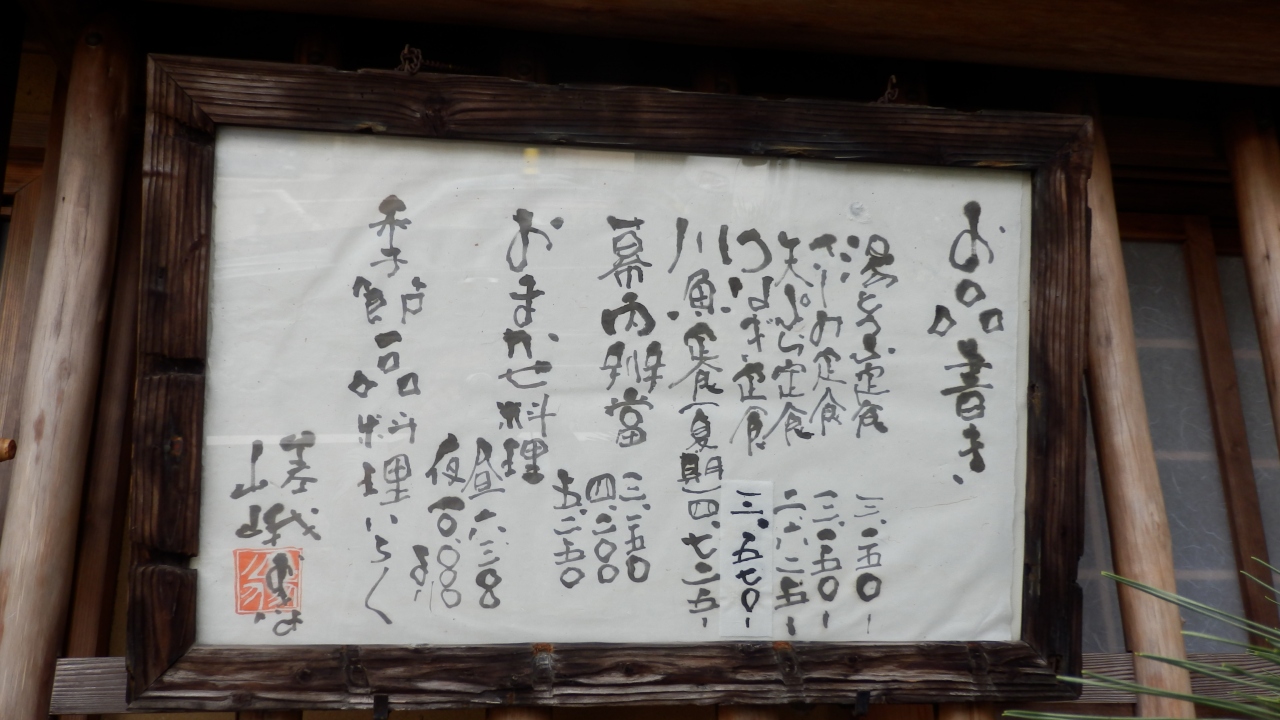 お品書き
湯どうふ定食 三.一五〇-
さしみ定食 三.一五〇-
天ぷら定食 二.六二五-
うなぎ定食 三.五七〇-
川魚定食(夏期)四.七二五-
幕内辨當 三.一五〇
四.二〇〇
五.二五〇
おまかせ料理 昼六.三〇〇
夜一〇.〇〇〇
より
季節一品料理いろく
嵯峨
山